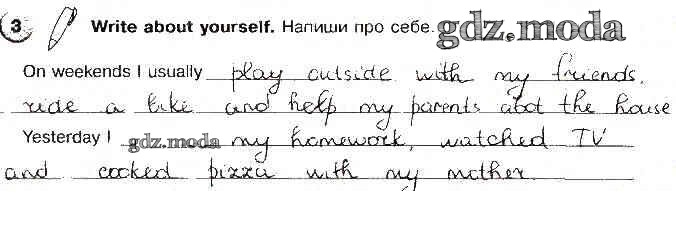 3 Write about yourself. Напиши про себе. gdz.moda
On weekends I usually play outside with my friends,
ride a bike and help my parents abot the house
Yesterday I gdz.moda my homework, watched TV
and cooked pizza with my mother